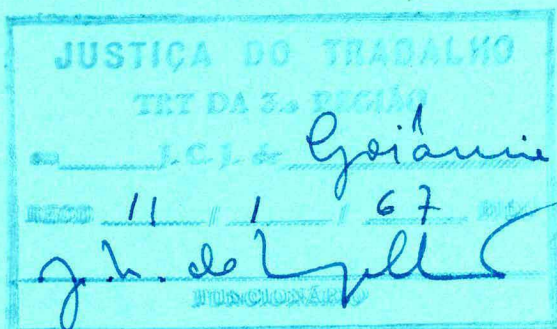 JUSTIÇA DO TRABALHO
TRT DA 3.a REGIÃO
J. C. J. de Goiânia
RECB 11 / 1 / 67
FUNCIONÁRIO